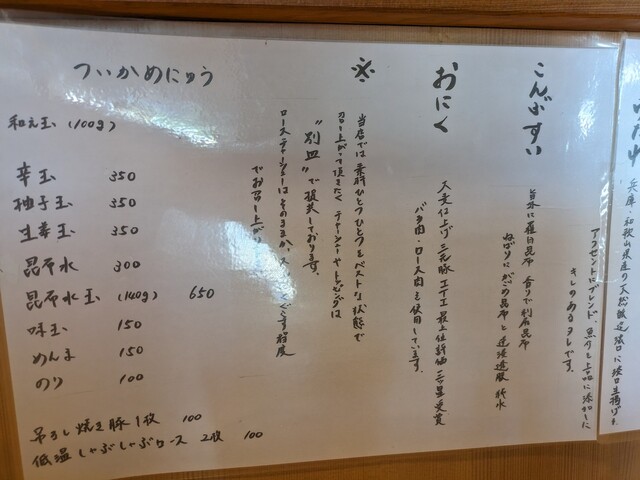 兵庫、和歌山県産の天然
アクセントにブレンド。魚介を上品に添加した
キレのあるタレです。
こんぶすい
旨味に羅臼昆布 香りで利尻昆布
ねばりにがごめ昆布 と 逆浸透膜 軟水
おにく
三元豚 最上位評価 三ツ星受賞
バラ肉・ロース肉を使用しています。
※
当店では素材ひとつひとつをベストな状態で
召し上がって頂たく チャーシューやトッピングは
"別皿"で提供しております。
ローストチャーシューはそのままか、ス くぐす程度
でお召し上がり
ついかめにゅう
和え玉 (100g)
辛玉 350
柚子玉 350
生姜玉 350
昆布水 300
昆布水玉 (140g) 650
味玉 150
めんま 150
のり 100
吊るし焼き豚1枚 100
低温しゃぶしゃぶロース 2枚 100